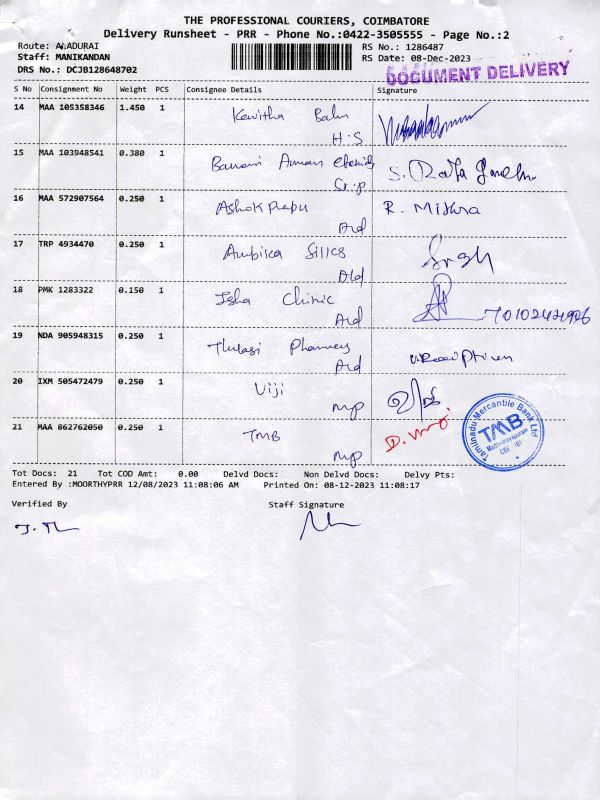 THE PROFESSIONAL COURIERS, COIMBATORE
Delivery Runsheet - PRR - Phone No.:0422-3505555 - Page No.:2
Route: ALADURAI RS No.: 1286487
Staff: MANIKANDAN RS Date: 08-Dec-2023
DRS No.: DCJB128648702 DOCUMENT DELIVERY
S No Consignment No Weight PCS Consignee Details Signature
14 MAA 105358346 1.450 1 Kavitha Balu
H.S
15 MAA 103948541 0.380 1 Bannari Amman
Sr.p S.
16 MAA 572907564 0.250 1 Ashok Prabu R. Mishra
Ard
17 TRP 4934470 0.250 1 Ambika Silks
Ard
18 PMK 1283322 0.150 1 Isha Clinic
Ard
19 NDA 905948315 0.250 1 Thulasi Pharmacy
Ard
20 IXM 505472479 0.250 1 Viji
mp
21 MAA 862762050 0.250 1 TMB
mp
Tamilnadu Mercantile Bank Ltd
TMB
CBE
Tot Docs: 21 Tot COD Amt: 0.00 Delvd Docs: Non Delvd Docs: Delvy Pts:
Entered By :MOORTHYPRR 12/08/2023 11:08:06 AM Printed On: 08-12-2023 11:08:17
Verified By Staff Signature